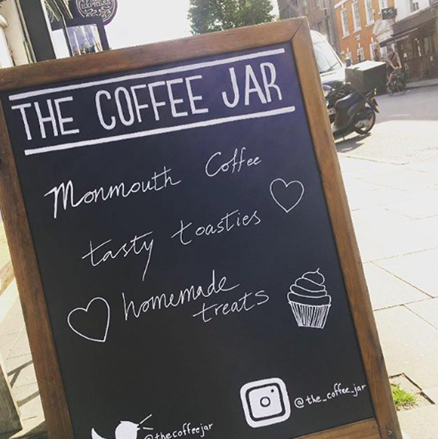 THE COFFEE JAR
Monmouth Coffee
tasty toasties
homemade
treats
@the_coffee_jar
@thecoffeejar